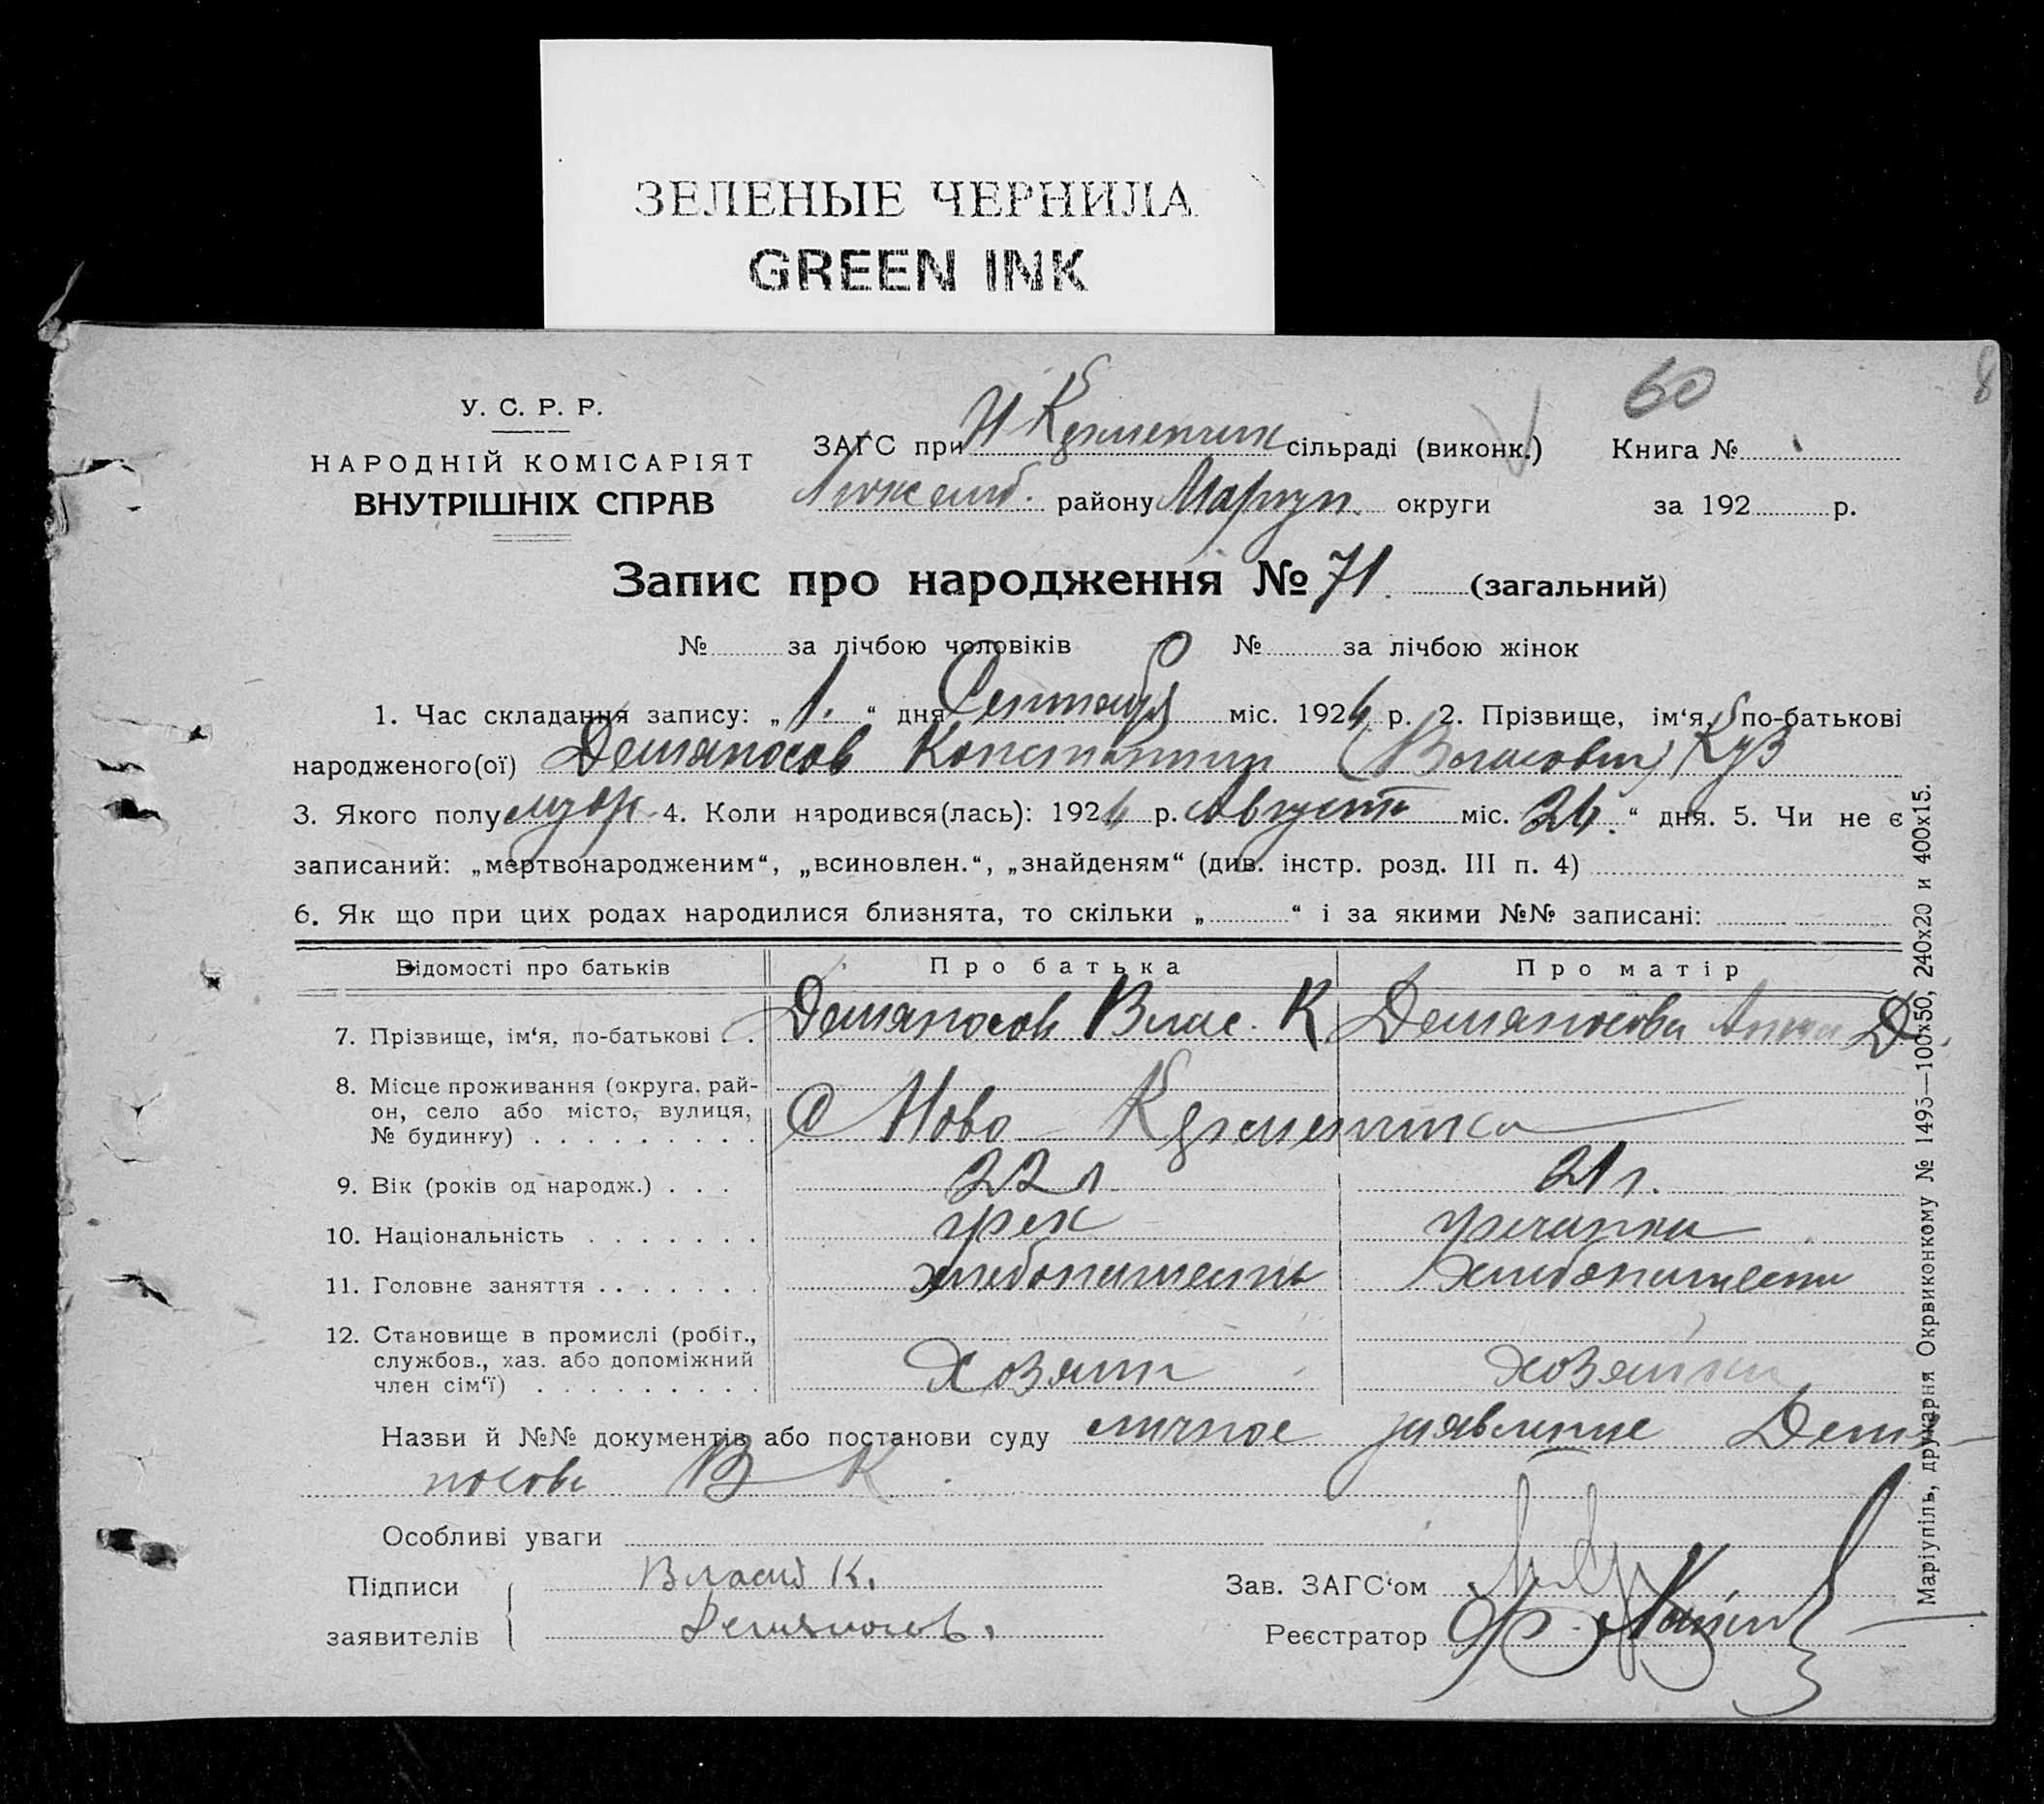 ЗЕЛЕНЫЕ ЧЕРНИЛА
GREEN INK
60
8
У. С. Р. Р.
НАРОДНІЙ КОМІСАРІЯТ
ВНУТРІШНІХ СПРАВ
ЗАГС при Н Кременчик сільраді (виконк.) Книга №
району Мариуп. округи за 192 р.
Запис про народження № 71. (загальний)
№ за лічбою чоловіків № за лічбою жінок
1. Час складання запису: „ 1. “ дня Сентябр міс. 1924 р. 2. Прізвище, ім‘я, по-батькові
народженого(ої) Демяносов Константин (Власович)
3. Якого полу муж 4. Коли народився(лась): 1924 р. Августа міс. 24. “ дня. 5. Чи не є
записаний: „мертвонародженим“, „всиновлен.“, „знайденям“ (див. інстр. розд. III п. 4)
6. Як що при цих родах народилися близнята, то скільки „ “ і за якими №№ записані:
Відомості про батьків Про батька Про матір
7. Прізвище, ім‘я, по-батькові . . Демяносов Влас. К Демяносова Анна Д.
8. Місце проживання (округа, рай-
он, село або місто, вулиця,
№ будинку) . . . . . . . . . С Ново Кременчик
9. Вік (років од народж.) . . . 22 л 21 г.
10. Національність . . . . . . . грек гречанка
11. Головне заняття . . . . . . . хлебопашест хлебопашест
12. Становище в промислі (робіт.,
службов., хаз. або допоміжний
член сім‘ї) . . . . . . . . . Хозяин хозяйка
Назви й №№ документів або постанови суду личное заявление Демя-
носова В К
Особливі уваги
Підписи Власий К.
заявителів Демяносов.
Зав. ЗАГС‘ом
Реєстратор
Маріупіль, друкарня Окрвиконкому № 1495—100х50, 240х20 и 400х15.